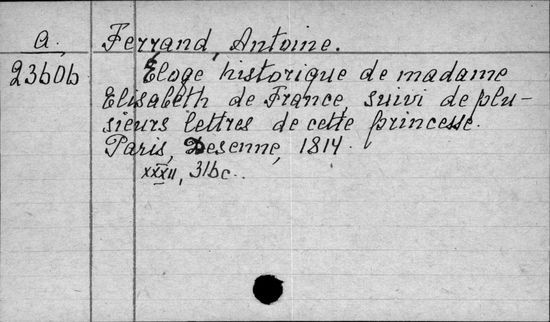 a. Ferrand, Antoine.
23606 Éloge historique de madame
Elisabeth de France, suivi de plu-
sieurs lettres de cette princesse.
Paris, Desenne, 1814.
XXXII, 316c.